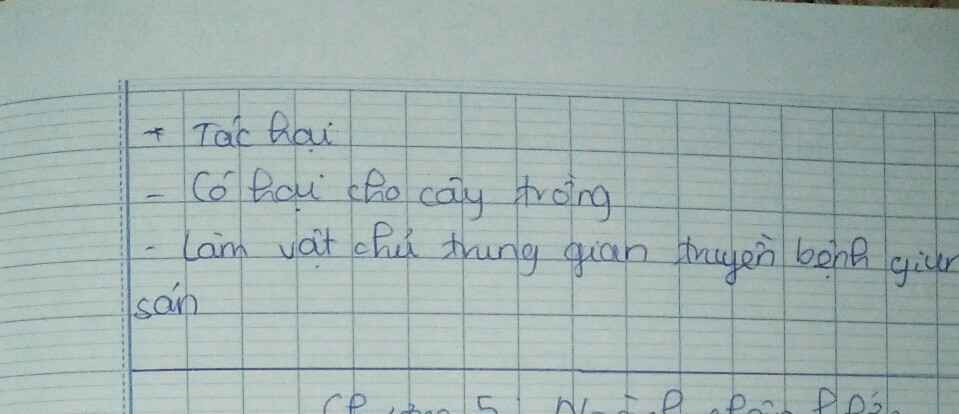 + Tác hại
- Có hại cho cây trồng
- Làm vật chủ trung gian truyền bệnh giun
sán